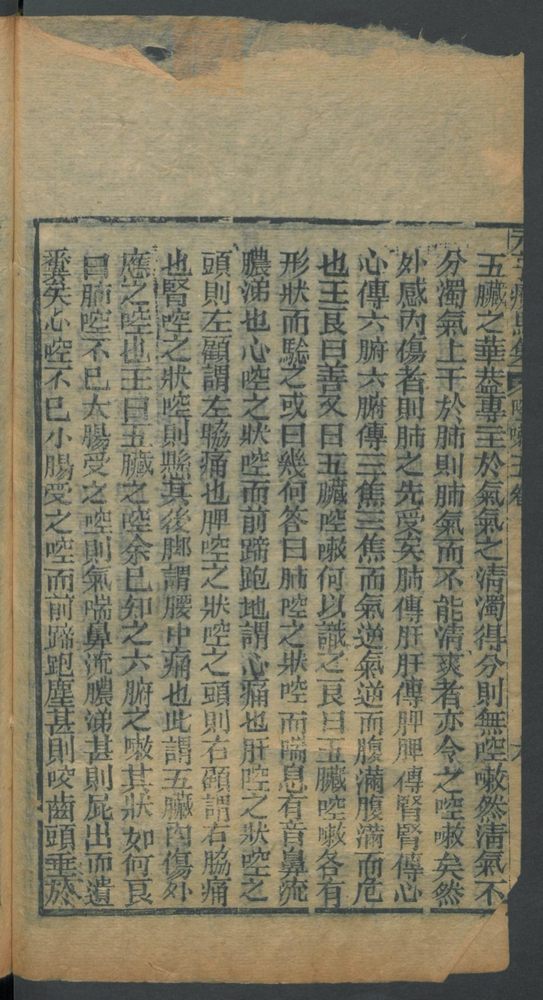 元亨療馬集 咳嗽 五卷 六
五臟之華蓋專主於氣氣之清濁得分則無啌嗽然清氣不
分濁氣上干於肺則肺氣而不能清爽者亦令之啌嗽矣然
外感內傷者則肺之先受矣肺傳肝肝傳脾脾傳腎腎傳心
心傳六腑六腑傳三焦三焦而氣逆氣逆而腹滿腹滿而危
也王良曰善又曰五臟啌嗽何以識之良曰五臟啌嗽各有
形狀而驗之或曰幾何答曰肺啌之狀啌而喘息有音鼻流
膿涕也心啌之狀啌而前蹄跑地謂心痛也肝啌之狀啌之
頭則左顧謂左脇痛也脾啌之狀啌之頭則右顧謂右脇痛
也腎啌之狀啌則懸其後脚謂腰中痛也此謂五臟內傷外
應之啌也王曰五臟之啌余已知之六腑之嗽其狀如何良
曰肺啌不已大腸受之啌則氣喘鼻流膿涕甚則屍出而遺
糞矣心啌不已小腸受之啌而前蹄跑塵甚則咬齒頭垂於